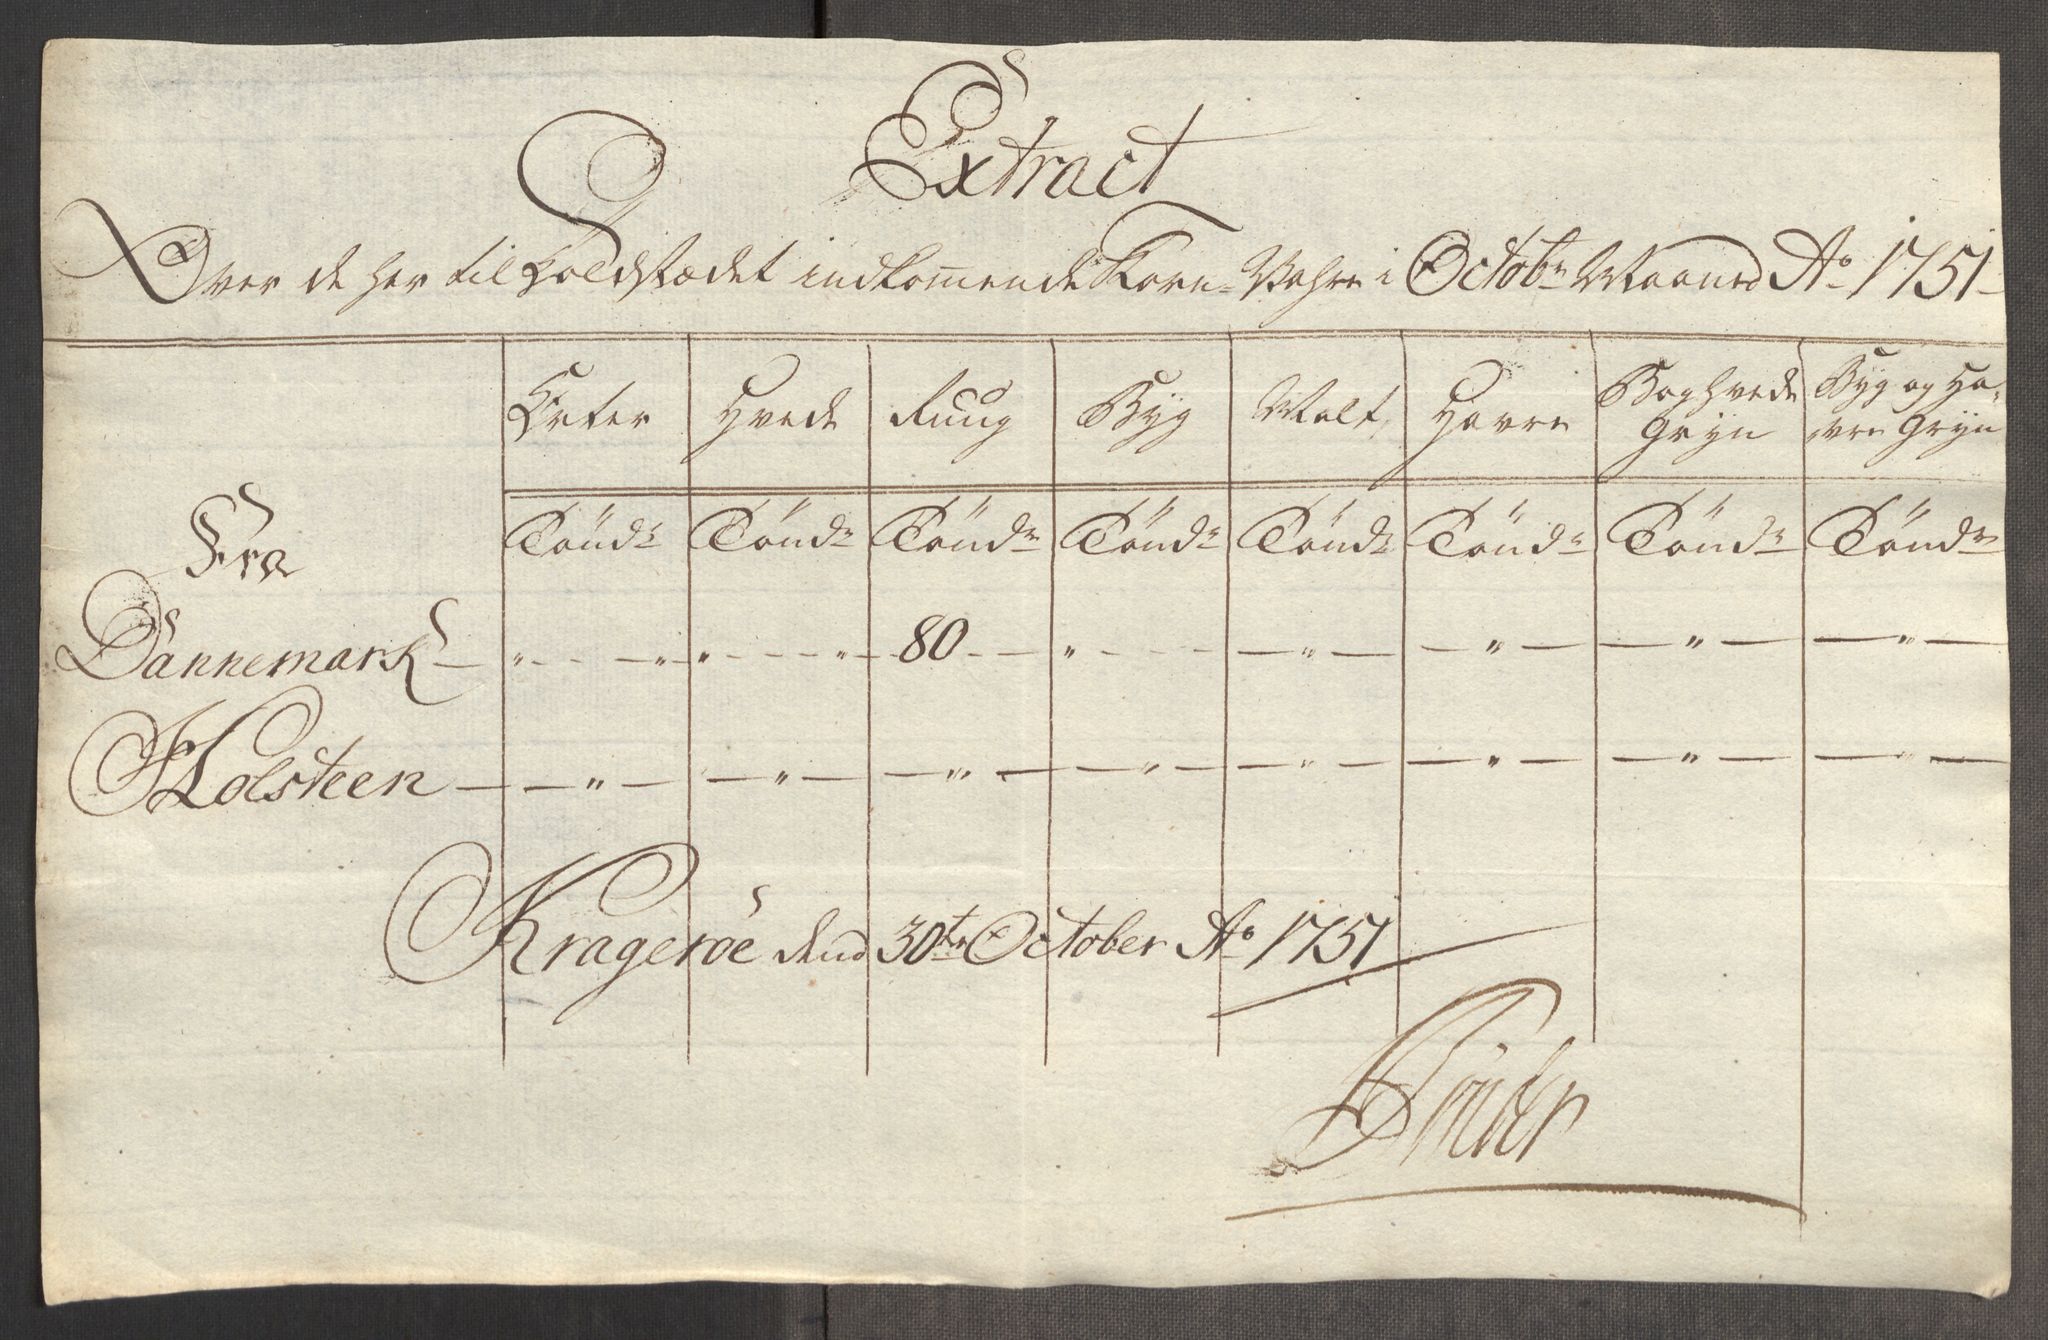 Extract
Over de her til Toldstædet indkommende Korn-Vahre i Octobr Maaned Ao 1751
Erter Hvede Ruug Byg Malt Havre Boghvede Gryn Byg og Ha-
vre Gryn
Fra Tönдr Töndr Töndr Töndr Töndr Töndr Töndr Töndr
Dannemark — " — " — 80 — " — " — " — " — " —
Holsteen — " — " — " — " — " — " — " — " —
Krageröe dend 30te October Ao 1751